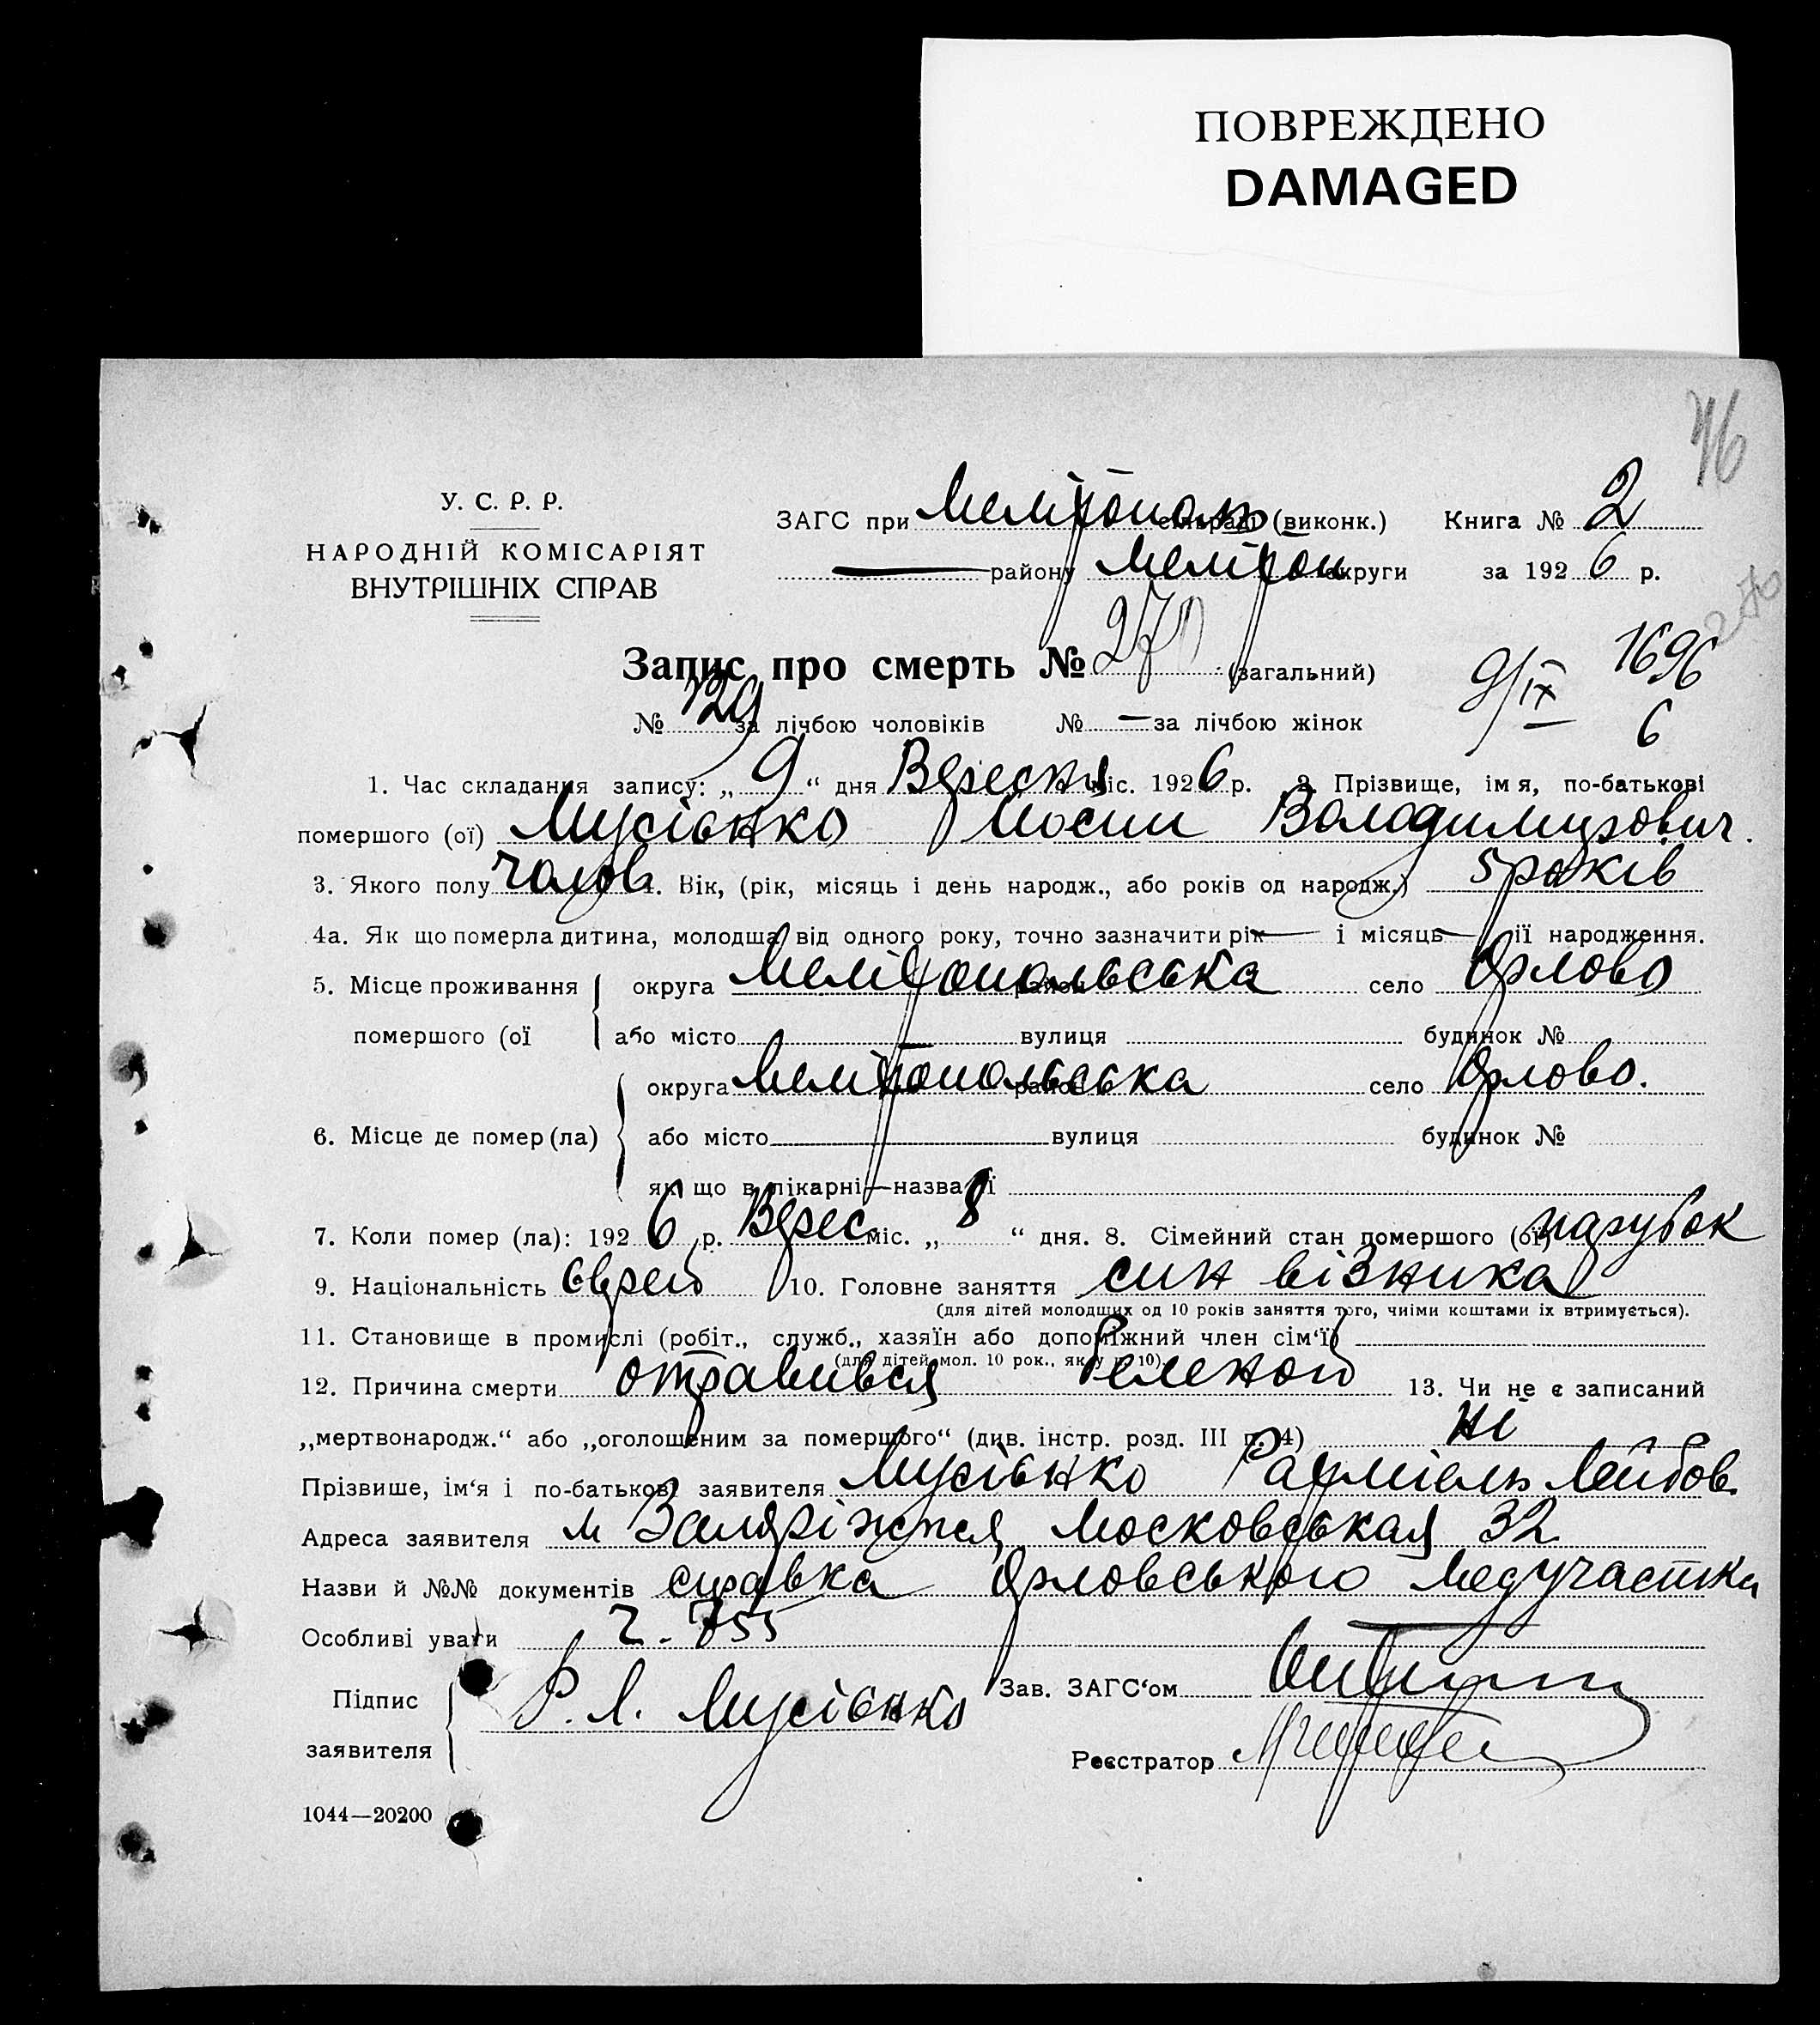 ПОВРЕЖДЕНО
DAMAGED
46
У. С. Р. Р.
НАРОДНІЙ КОМІСАРІЯТ
ВНУТРІШНІХ СПРАВ
ЗАГС при Мелітополь сільраді (виконк.) Книга № 2
— району Мелітоп округи за 1926 р.
270
Запис про смерть № 270 (загальний)
9/IX 1696
6
№ 129 за лічбою чоловіків № — за лічбою жінок
1. Час складання запису: „ 9 “ дня Вересня міс. 1926 р. 2. Прізвище, імя, по-батькові
помершого (ої) Мусієнко Йосип Володимирович.
3. Якого полу чолов 4. Вік, (рік, місяць і день народж., або років од народж.) 5 років
4а. Як що померла дитина, молодша від одного року, точно зазначити рік — і місяць — її народження.
5. Місце проживання помершого (ої округа Мелітопольська район село Орлово
або місто — вулиця будинок №
6. Місце де помер (ла) округа Мелітопольська район село Орлово.
або місто вулиця будинок №
як що в лікарні—назва її
7. Коли помер (ла): 1926 р. Верес міс. „ 8 “ дня. 8. Сімейний стан помершого (ої) парубок
9. Національність Єврей 10. Головне заняття син візника
(для дітей молодших од 10 років заняття того, чиїми коштами їх втримується).
11. Становище в промислі (робіт., служб., хазяїн або допоміжний член сім‘ї)
(для дітей мол. 10 рок., як у п. 10).
12. Причина смерти отравився беленой 13. Чи не є записаний
„мертвонародж.“ або „оголошеним за помершого“ (див. інстр. розд. III п. 4) ні
Прізвише, ім‘я і по-батькові заявителя Мусієнко Рахміель Лейбов.
Адреса заявителя м Запоріжжя Московськая 32
Назви й №№ документів справка Орловського медучастка
Особливі уваги ч. 755
Підпис заявителя Р. Л. Мусієнко
Зав. ЗАГС‘ом
Реєстратор
1044—20200